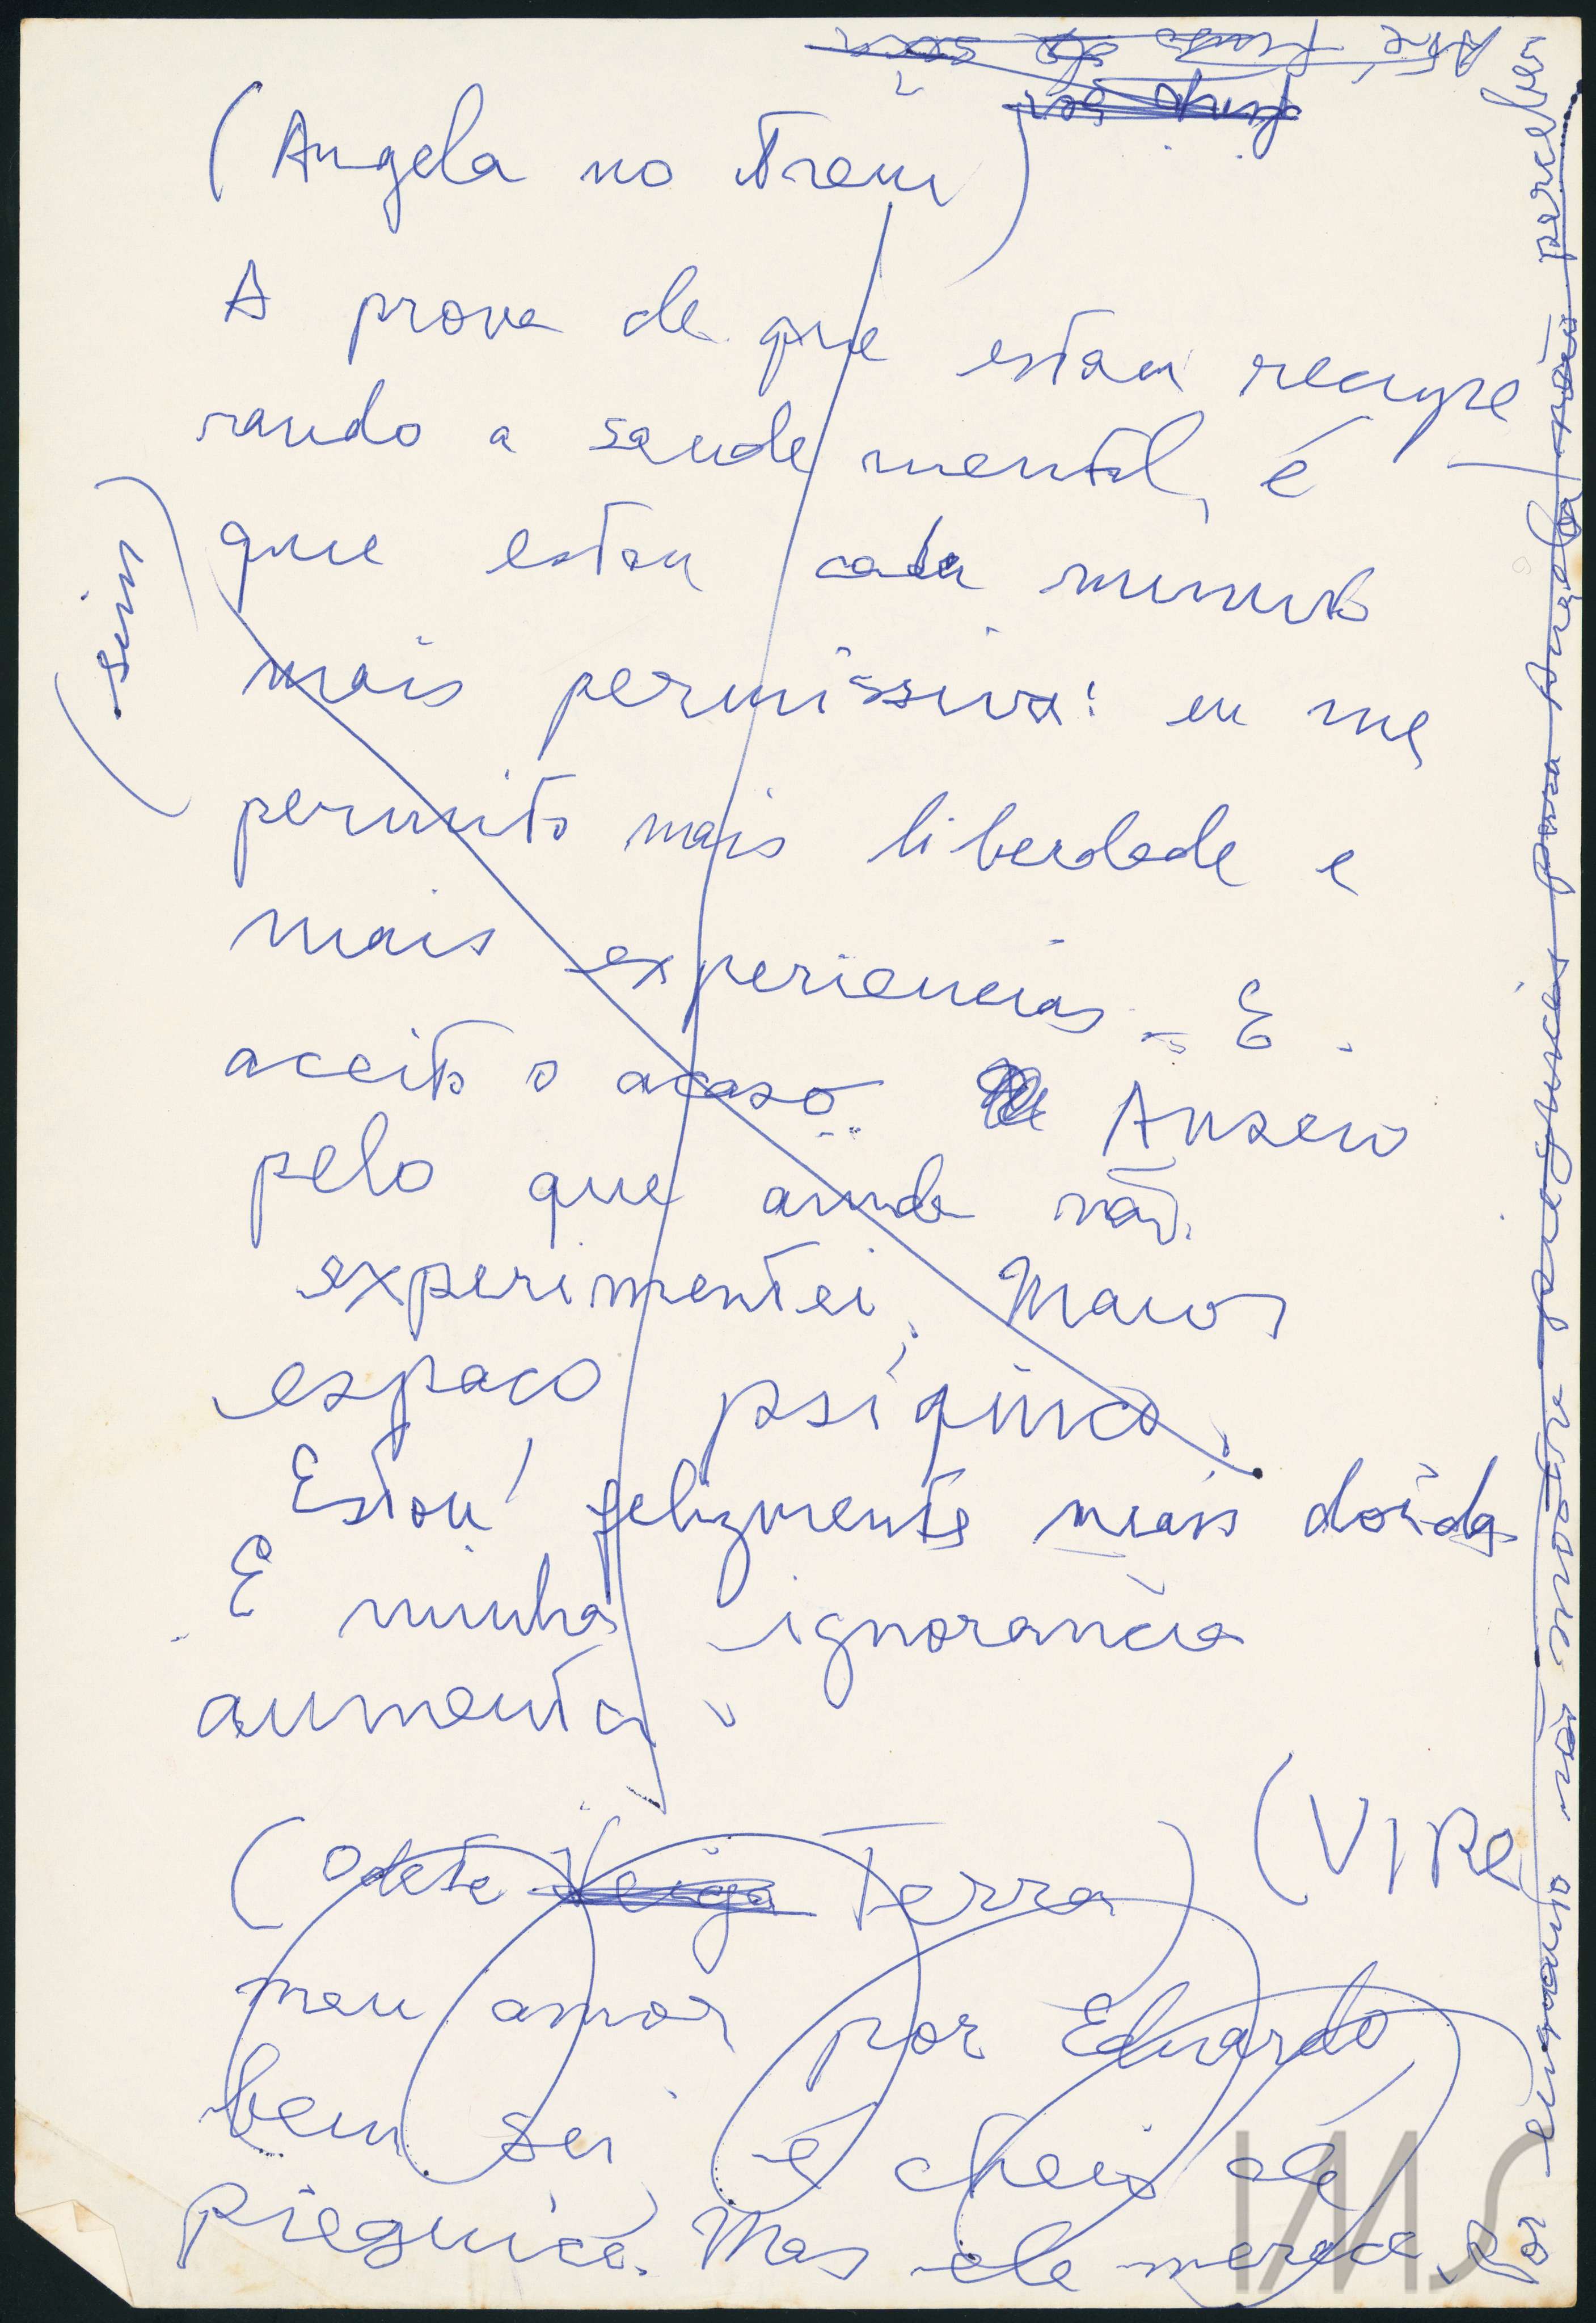 (Angela no Trem)
A prova de que estou recupe
rando a saude mental, é
que estou cada minuto
mais permissiva: eu me
permito mais liberdade e
mais experiencias. E
aceito o acaso. Anseio
pelo que ainda não
experimentei. Maior
espaço psíquico.
Estou felizmente mais doida
E minha ignorancia
aumenta.
(sim)
(VIRE
(Odete Veiga Terra)
meu amor por Eduardo,
bem sei, é cheio de
pieguice. Mas ele merece
Por enquanto não mostre pieguices para Angela não perceber
Até
IMS